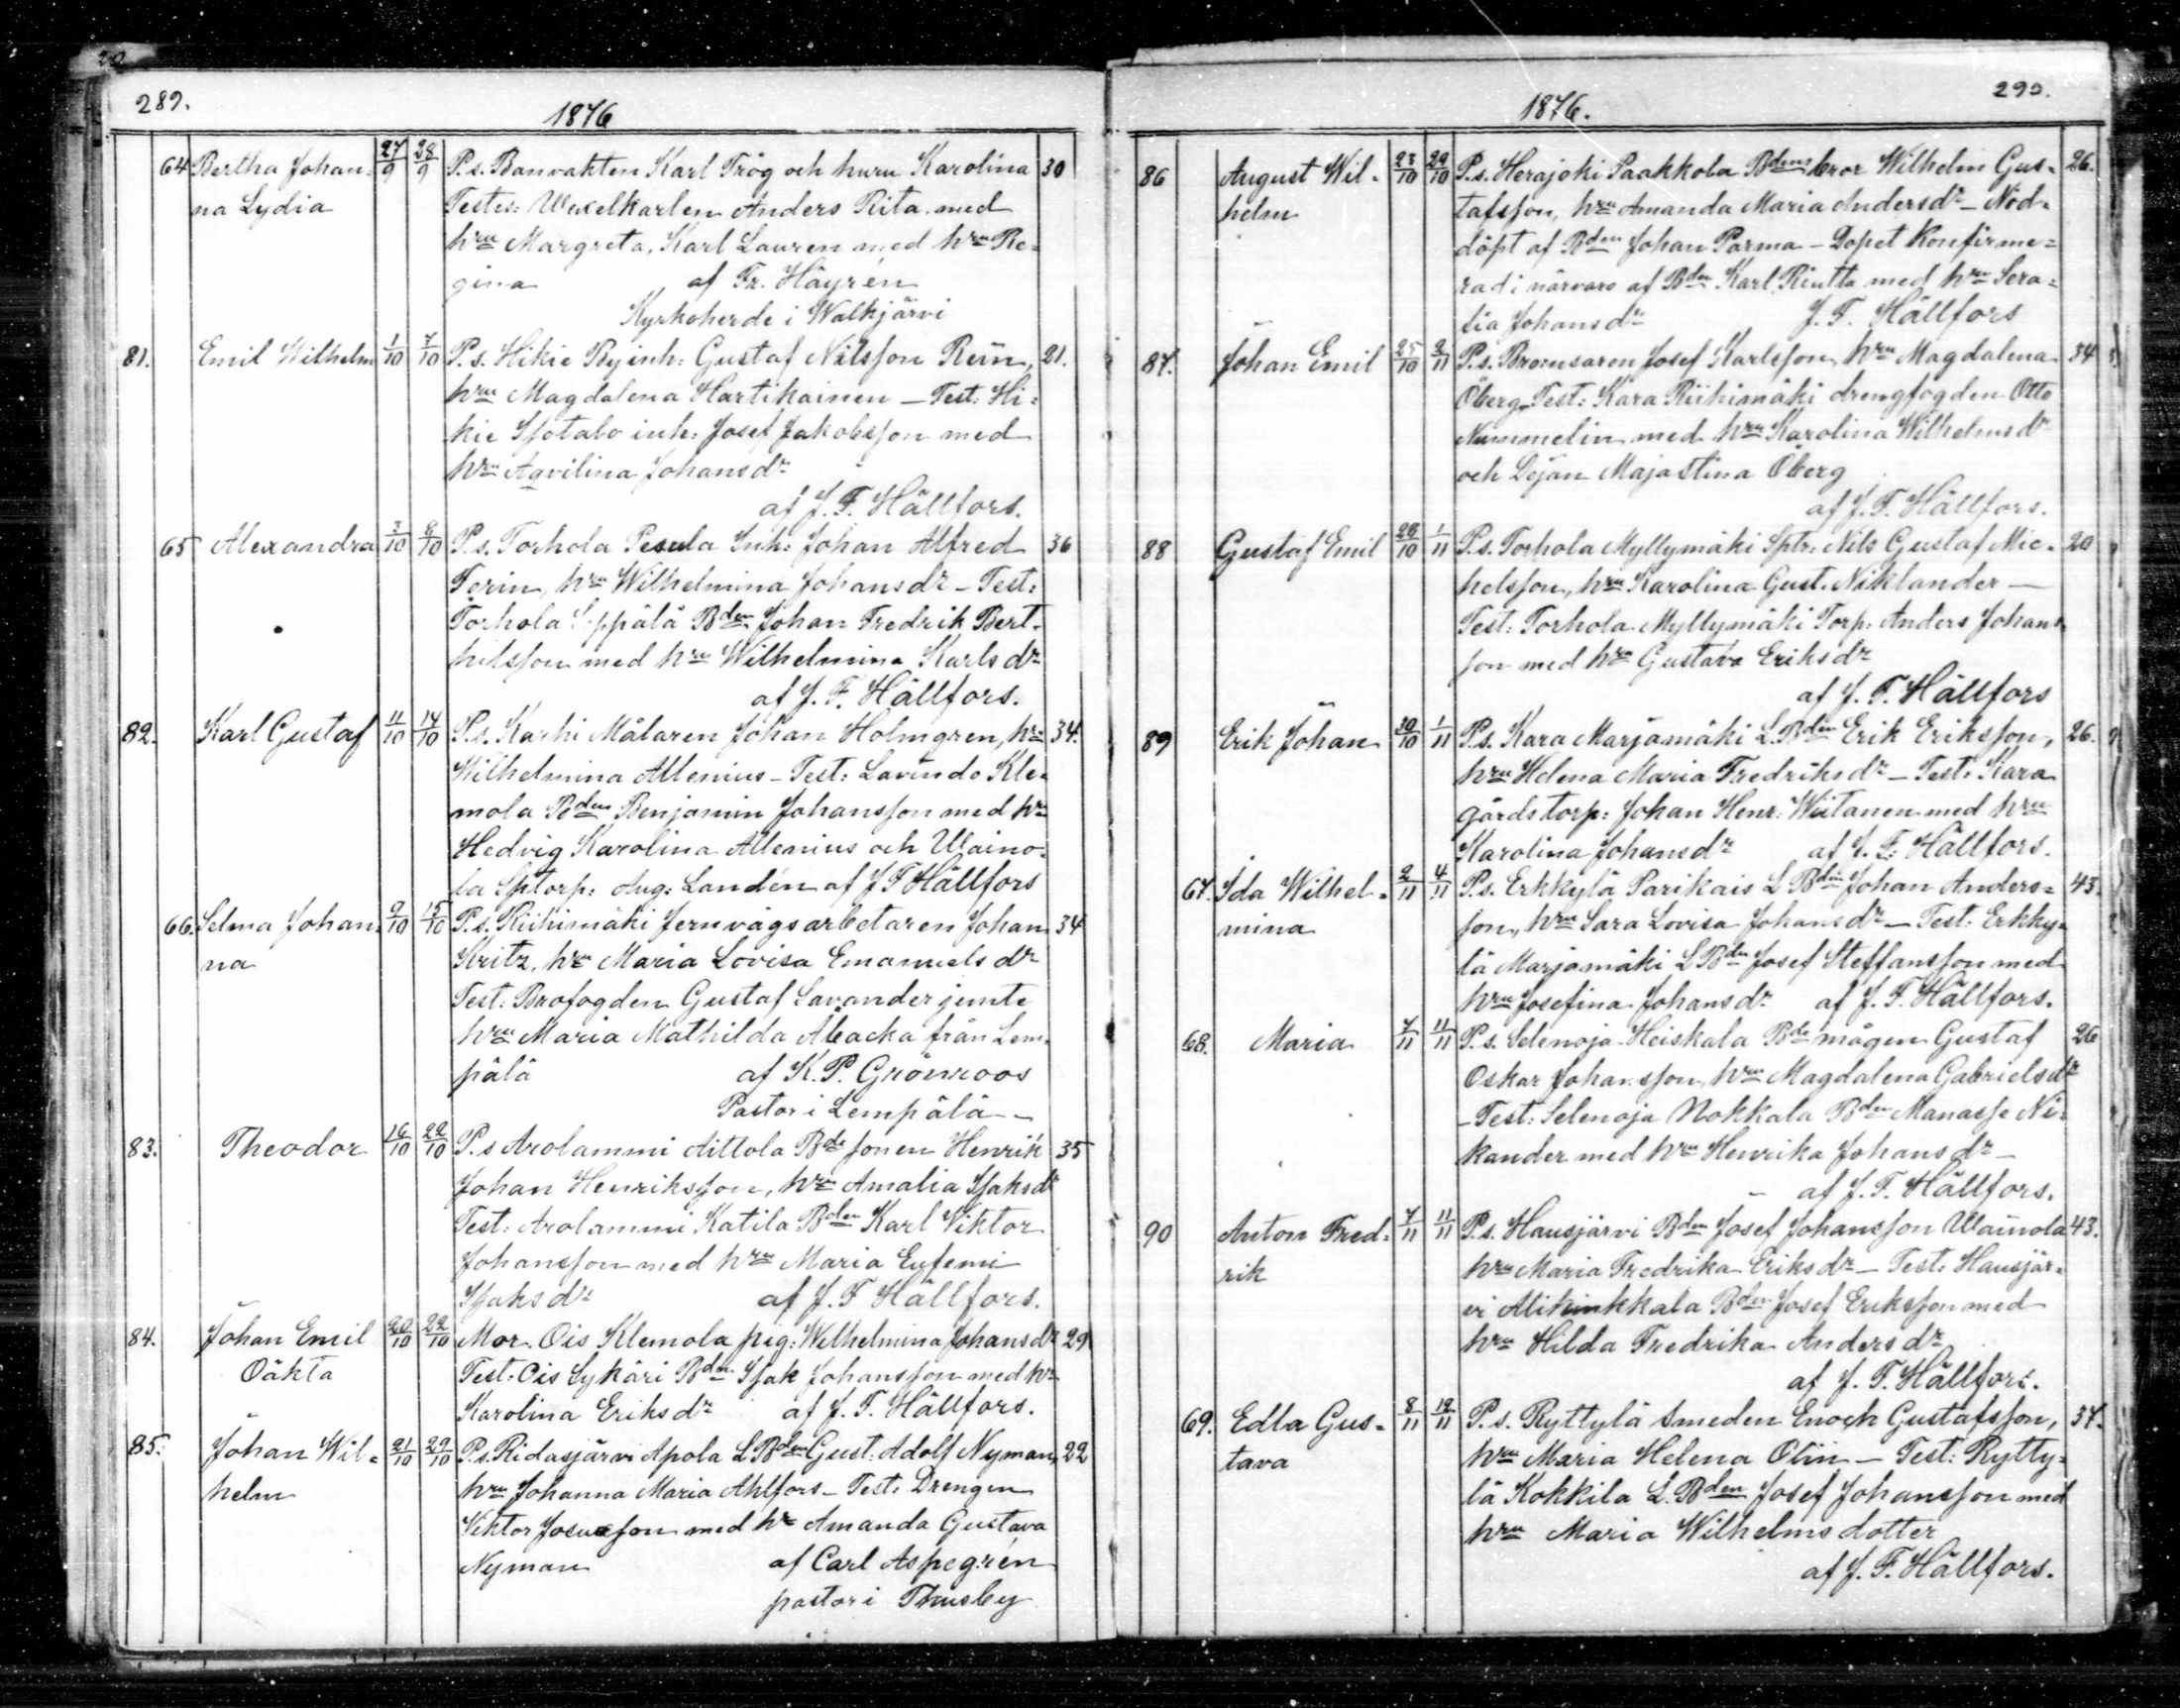 289.
1876
64 Bertha Johan- 27/9 28/9 P.s. Banvakten Karl Trög och huru Karolina 30
na Lydia Testes: Wexelkarlen Anders Rita med
hru Margreta, Karl Lauren med hru Re-
gina af Fr. Häyrén
Kyrkoherde i Walkjärvi
81. Emil Wilhelm 1/10 7/10 P.s. Hikie Byinh: Gustaf Nilsson Rein, 21.
hru Magdalena Hartikainen – Test: Hi-
kie Isotalo inh: Josef Jakobsson med
hru Aqvilina Johansdr
af J. F. Hällfors.
65 Alexandra 3/10 8/10 P.s. Torhola Pesula Inh: Johan Alfred 36
Torin, hru Wilhelmina Johansdr – Test:
Torhola Seppälä Bden Johan Fredrik Bert-
hilsson med hru Wilhelmina Karlsdr
af J. F. Hällfors.
82. Karl Gustaf 11/10 14/10 P.s. Karhi Målaren Johan Holmgren, hru 34.
Wilhelmina Allenius – Test: Lavindo Kle-
mola Bden Benjamin Johansson med hru
Hedvig Karolina Allenius och Waino-
la Sptorp: Aug: Landén af J F Hällfors
66. Selma Johan- 9/10 15/10 P.s. Riihimäki Jernvägsarbetaren Johan 34
na Kritz, hru Maria Lovisa Emanuelsdr
Test: Brofogden Gustaf Savander jemte
hru Maria Mathilda Abacka från Lem-
pälä af K. P. Grönroos
Pastor i Lempälä –
83. Theodor 16/10 22/10 P.s Arolammi Aittola Bde sonen Henrik 35
Johan Henriksson, hru Amalia Isaksdr
Test: Arolammi Katila Bden Karl Viktor
Johansson med hru Maria Eufemi
Isaksdr af J. F Hällfors.
84. Johan Emil 20/10 22/10 Mor. Ois Klemola pig: Wilhelmina Johansdr 29
Oäkta Test: Ois Sykäri Bden Isak Johansson med hru
Karolina Eriksdr af J. F. Hällfors.
85. Johan Wil- 21/10 29/10 P.s. Ridasjärvi Apola L Bden Gust: Adolf Nyman, 22
helm hru Johanna Maria Ahlfors – Test: Drengen
Viktor Josuasson med hr Amanda Gustava
Nyman af Carl Aspegrén
pastor i Thusby
290.
1876.
86 August Wil- 23/10 29/10 P.s. Herajoki Paakkola Bdens bror Wilhelm Gus- 26.
helm tafsson, hru Amanda Maria Andersdr – Nöd-
döpt af Bden Johan Parma – Dopet Konfirme-
rad i närvaro af Bden Karl Riutta med hru Sera-
lia Johansdr J. F. Hällfors
87. Johan Emil 25/10 2/11 P.s. Bromsaren Josef Karlsson, hru Magdalena 34
Öberg – Test: Kara Riihimäki drengfogden Otto
Nummelin med hru Karolina Wilhelmsdr
och Lejan Majastina Öberg
af J. F. Hällfors.
88 Gustaf Emil 28/10 1/11 P.s. Torhola Myllymäki Sptr: Nils Gustaf Mic- 20
helsson, hru Karolina Gust. Niklander –
Test: Torhola Myllymäki Torp: Anders Johans-
son med hru Gustava Eriksdr
af J. F. Hällfors
89 Erik Johan 30/10 1/11 P.s. Kara Marjamäki L. Bden Erik Eriksson, 26.
hru Helena Maria Fredriksdr – Test: Kara
gårdstorp: Johan Henr: Wiitanen med hru
Karolina Johansdr af J. F. Hällfors.
67. Ida Wilhel- 2/11 4/11 P.s. Erkkylä Parikais L Bden Johan Anders- 43.
mina son, hru Sara Lovisa Johansdr – Test: Erkky-
lä Marjamäki L Bden Josef Steffansson med
hru Josefina Johansdr af J. F. Hällfors.
68. Maria 7/11 11/11 P.s. Selenoja Heiskala Bde mågen Gustaf 26
Oskar Johansson, hru Magdalena Gabrielsdr
– Test: Selenoja Nokkala Bden Manasse Ni-
kander med hru Henrika Johansdr –
af J. F. Hällfors.
90 Anton Fred- 7/11 11/11 P.s. Hausjärvi Bden Josef Johansson Wainola 43.
rik hru Maria Fredrika Eriksdr – Test: Hausjär-
vi Alikinkkala Bden Josef Eriksson med
hru Hilda Fredrika Andersdr
af J. F. Hällfors.
69. Edla Gus- 8/11 12/11 P.s. Ryttylä Smeden Enoch Gustafsson, 37.
tava hru Maria Helena Olin – Test: Rytty-
lä Kokkila L. Bden Josef Johansson med
hru Maria Wilhelms dotter
af J. F. Hällfors.